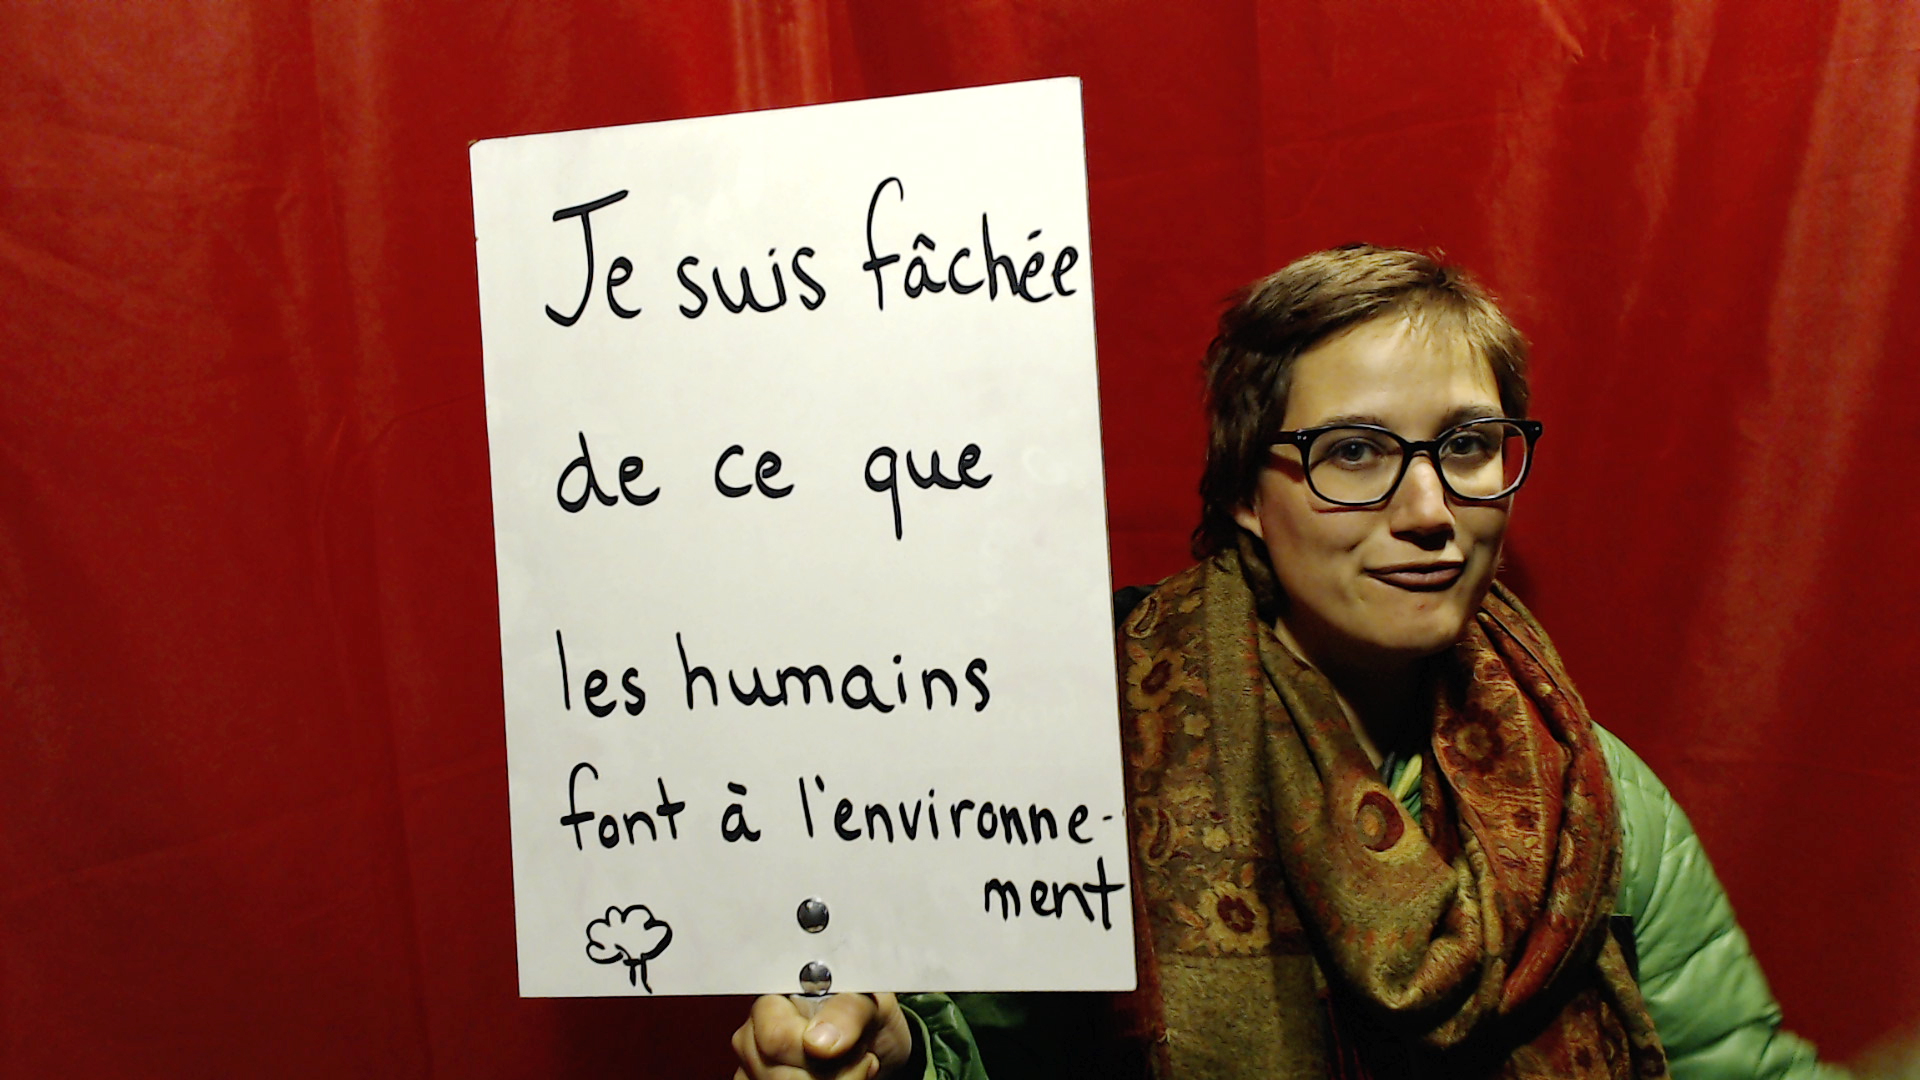 Je suis fâchée
de ce que
les humains
font à l'environne-
ment